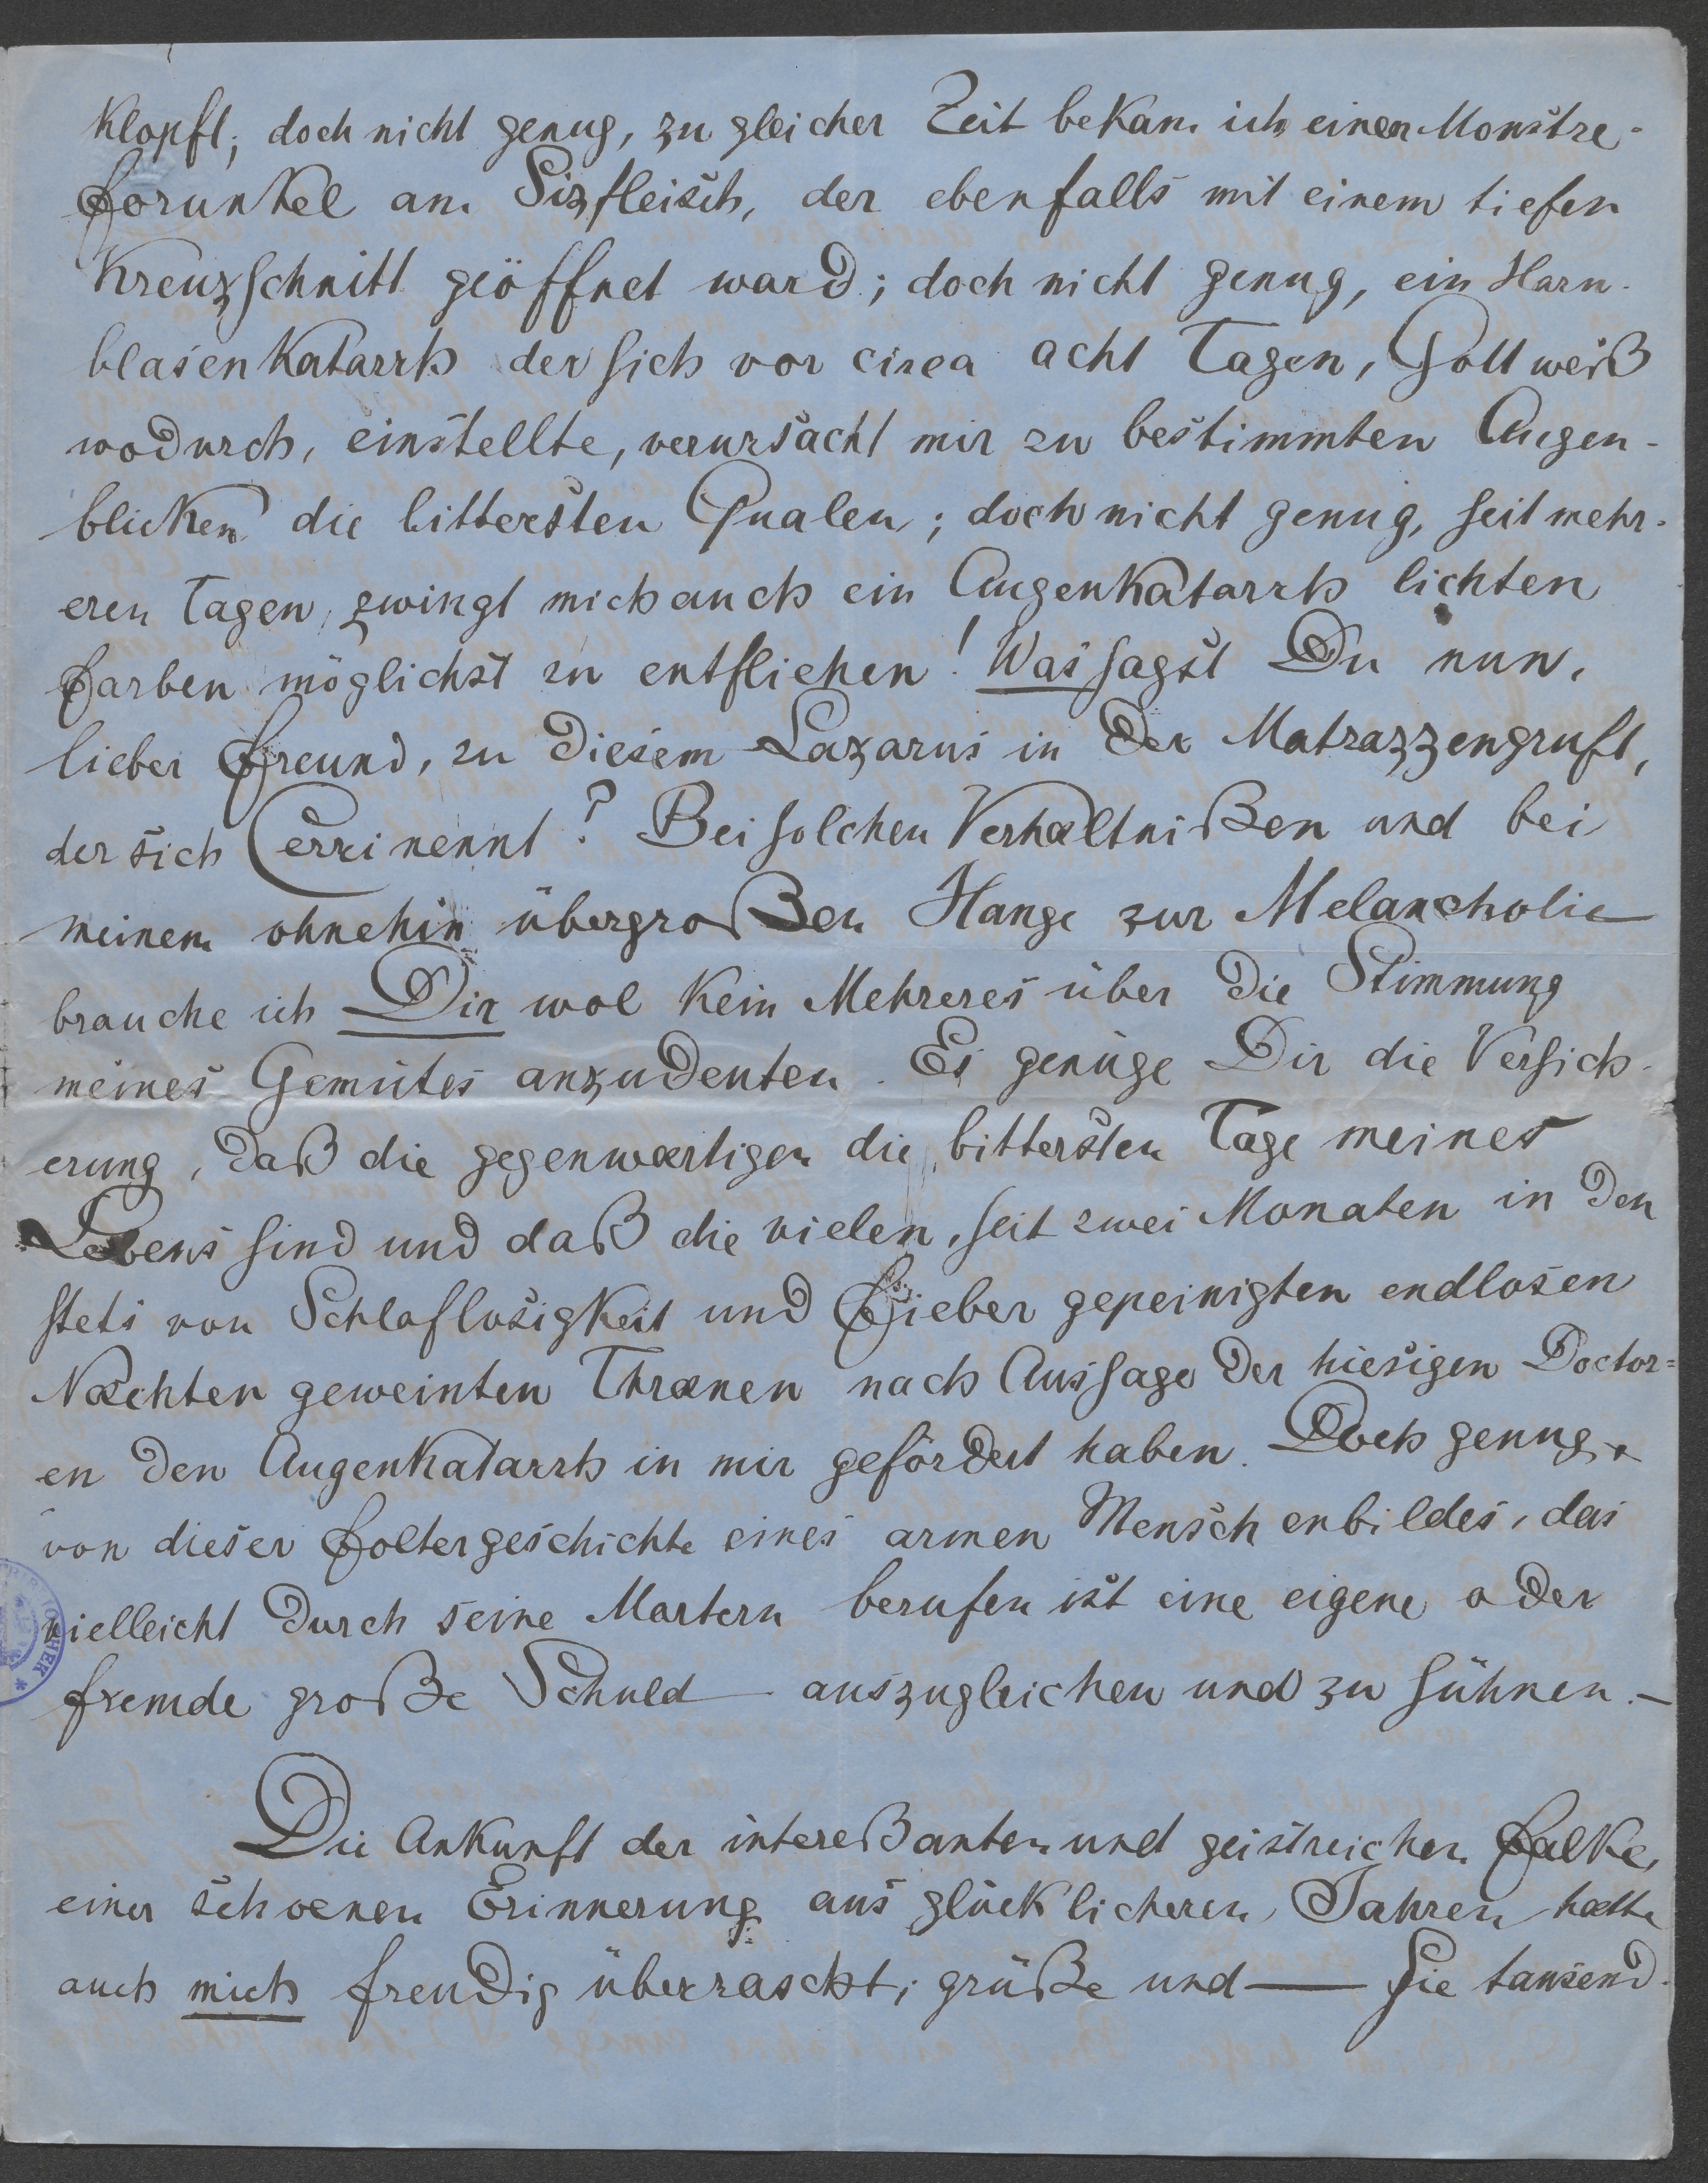 klopft; doch nicht genug, zu gleicher Zeit bekam ich einen Monstre-
forunkel am Sizfleisch, der ebenfalls mit einem tiefen
Kreuzschnitt geöffnet ward; doch nicht genug, ein Harn-
blasenkatarrh der sich vor circa acht Tagen, Gott weiß
wodurch, einstellte, verursacht mir zu bestimmten Augen-
blicken die bittersten Qualen; doch nicht genug, seit mehr-
eren Tagen, zwingt mich auch ein Augenkatarrh lichten
Farben möglichst zu entfliehen! Was sagst Du nun,
lieber Freund, zu diesem Lazarus in der Matrazzengruft,
der sich Cerri nennt? Bei solchen Verhæltnißen und bei
meinem ohnehin übergroßen Hange zur Melancholie
brauche ich Dir wol kein Mehreres über die Stimmung
meines Gemütes anzudeuten. Es genüge Dir die Versich-
erung, daß die gegenwærtigen die bittersten Tage meines
Lebens sind und daß die vielen, seit zwei Monaten in den
stets von Schlaflosigkeit und Fieber gepeinigten endlosen
Næchten geweinten Thrænen nach Aussage der hiesigen Doctor=
en den Augenkatarrh in mir gefördert haben. Doch genug
von dieser Foltergeschichte eines armen Menschenbildes, das
vielleicht durch seine Martern berufen ist eine eigene oder
fremde große Schuld auszugleichen und zu sühnen. –
Die Ankunft der intereßanten und geistreichen Falke,
einer schoenen Erinnerung aus glücklicheren Jahren hatte
auch mich freudig überrascht; grüße und — sie tausend-